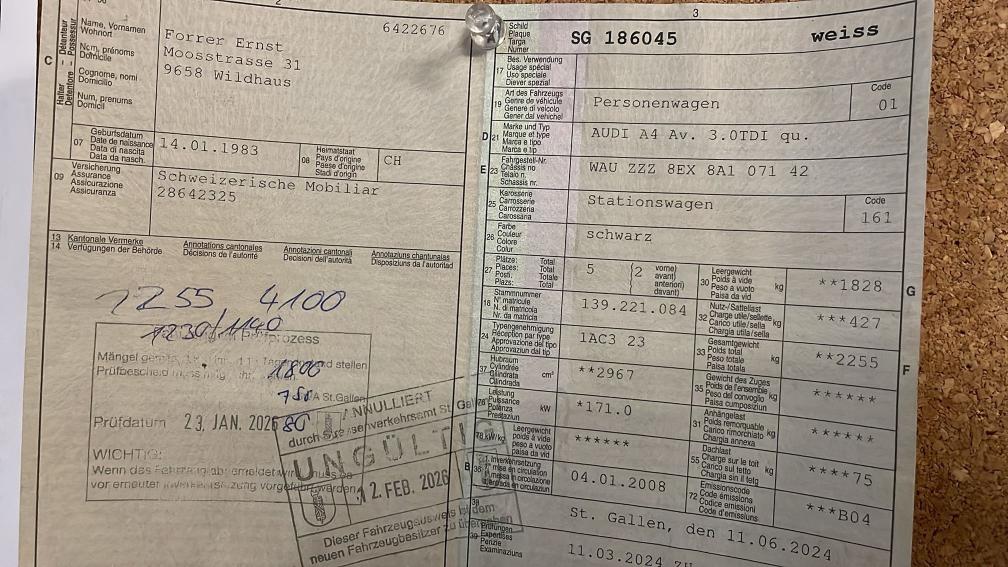 2
3
C
Halter
Détenteur
Detentore
Possessur
Name, Vornamen
Wohnort
Nom, prénoms
Domicile
Cognome, nomi
Domicilio
Num, prenums
Domicil
6422676
Forrer Ernst
Moosstrasse 31
9658 Wildhaus
07 Geburtsdatum
Date de naissance
Data di nascita
Data da nasch.
14.01.1983
08 Heimatstaat
Pays d'origine
Paese d'origine
Stadi d'origin
CH
09 Versicherung
Assurance
Assicurazione
Assicuranza
Schweizerische Mobiliar
28642325
13 Kantonale Vermerke Annotations cantonales Annotazioni cantonali Annotaziuns chantunalas
14 Verfügungen der Behörde Décisions de l'autorité Decisioni dell'autorità Disposiziuns da l'autoritad
1255 4100
1230/1140
prozess
Mängel stellen
Prüfbescheid
1800
750
St.Gallen
Prüfdatum 23. JAN. 2026
80
WICHTIG:
Wenn das Fahrzeug abgemeldet
vor erneuter werden
ANNULLIERT
durch Strassenverkehrsamt St. Gallen
UNGÜLTIG
12. FEB. 2026
Dieser Fahrzeugausweis ist dem
neuen Fahrzeugbesitzer zu übergeben
Schild
Plaque
Targa
Numer
SG 186045 weiss
17 Bes. Verwendung
Usage spécial
Uso speciale
Diever spezial
19 Art des Fahrzeugs
Genre de véhicule
Genere di veicolo
Gener dal vehichel
Personenwagen
Code
01
D 21 Marke und Typ
Marque et type
Marca e tipo
Marca e tip
AUDI A4 Av. 3.0TDI qu.
E 23 Fahrgestell-Nr.
Châssis no
Telaio n.
Schassis nr.
WAU ZZZ 8EX 8A1 071 42
25 Karosserie
Carrosserie
Carrozzeria
Carossaria
Stationswagen
Code
161
26 Farbe
Couleur
Colore
Colur
schwarz
27 Plätze: Total
Places: Total
Posti: Totale
Plazs: Total
5
(2 vorne)
avant)
anteriori)
davant)
30 Leergewicht
Poids à vide
Peso a vuoto
Paisa da vid
kg
**1828
G
18 Stammnummer
N° matricule
N. di matricola
Nr. da matricla
139.221.084
32 Nutz-/Sattellast
Charge utile/sellette
Carico utile/sella
Chargia utila/sella
kg
***427
24 Typengenehmigung
Réception par type
Approvazione del tipo
Approvaziun dal tip
1AC3 23
33 Gesamtgewicht
Poids total
Peso totale
Paisa totala
kg
**2255
F
37 Hubraum
Cylindrée
Cilindrata
Cilindrada
cm³
**2967
35 Gewicht des Zuges
Poids de l'ensemble
Peso del convoglio
Paisa cumposiziun
kg
******
76 Leistung
Puissance
Potenza
Prestaziun
kW
*171.0
31 Anhängelast
Poids remorquable
Carico rimorchiato
Chargia annexa
kg
******
78 kW/kg
Leergewicht
poids à vide
peso a vuoto
paisa da vid
******
55 Dachlast
Charge sur le toit
Carico sul tetto
Chargia sin il tetg
kg
****75
B 36 1. Inverkehrsetzung
1re mise en circulation
04.01.2008
72 Emissionscode
Code émissions
Codice emissioni
Code d'emissiuns
***B04
38
St. Gallen, den 11.06.2024
39 Prüfungen
Expertises
Perizie
Examinaziuns
11.03.2024